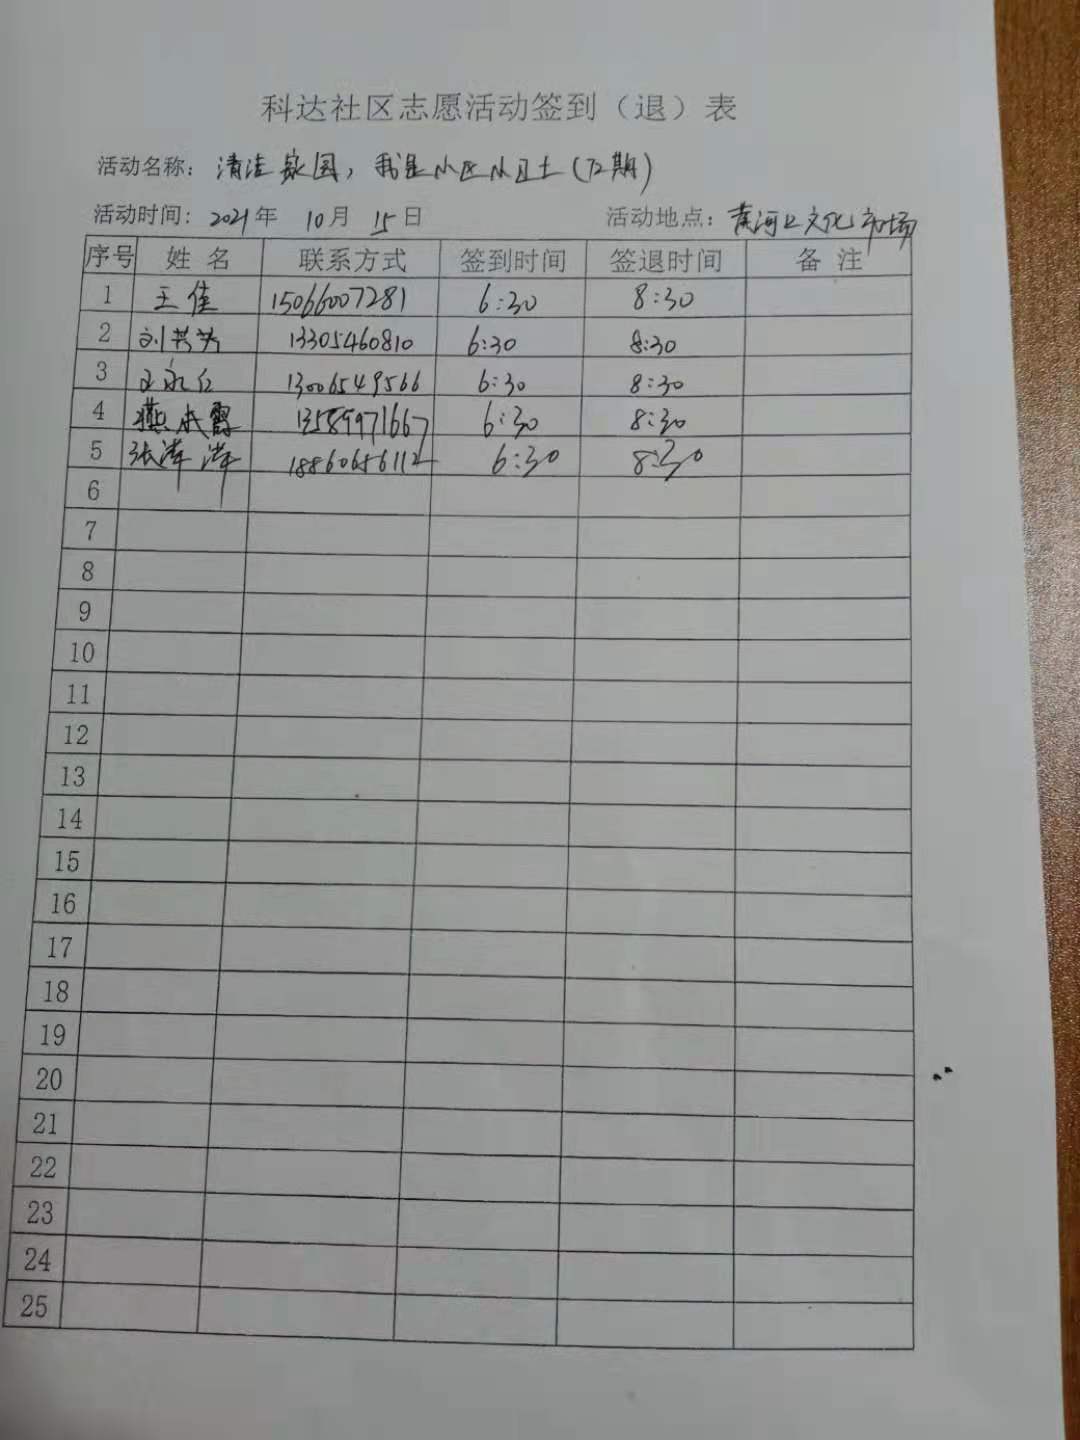 科达社区志愿活动签到（退）表
活动名称：清洁家园，我是小区小卫士(72期)
活动时间：2021年 10月 15日 活动地点：黄河口文化市场
序号 姓 名 联系方式 签到时间 签退时间 备 注
1 王佳 15066007281 6:30 8:30
2 刘芸芸 13305460810 6:30 8:30
3 13006549566 6:30 8:30
4 燕 13589971667 6:30 8:30
5 张萍萍 18860656112 6:30 8:30
6
7
8
9
10
11
12
13
14
15
16
17
18
19
20
21
22
23
24
25